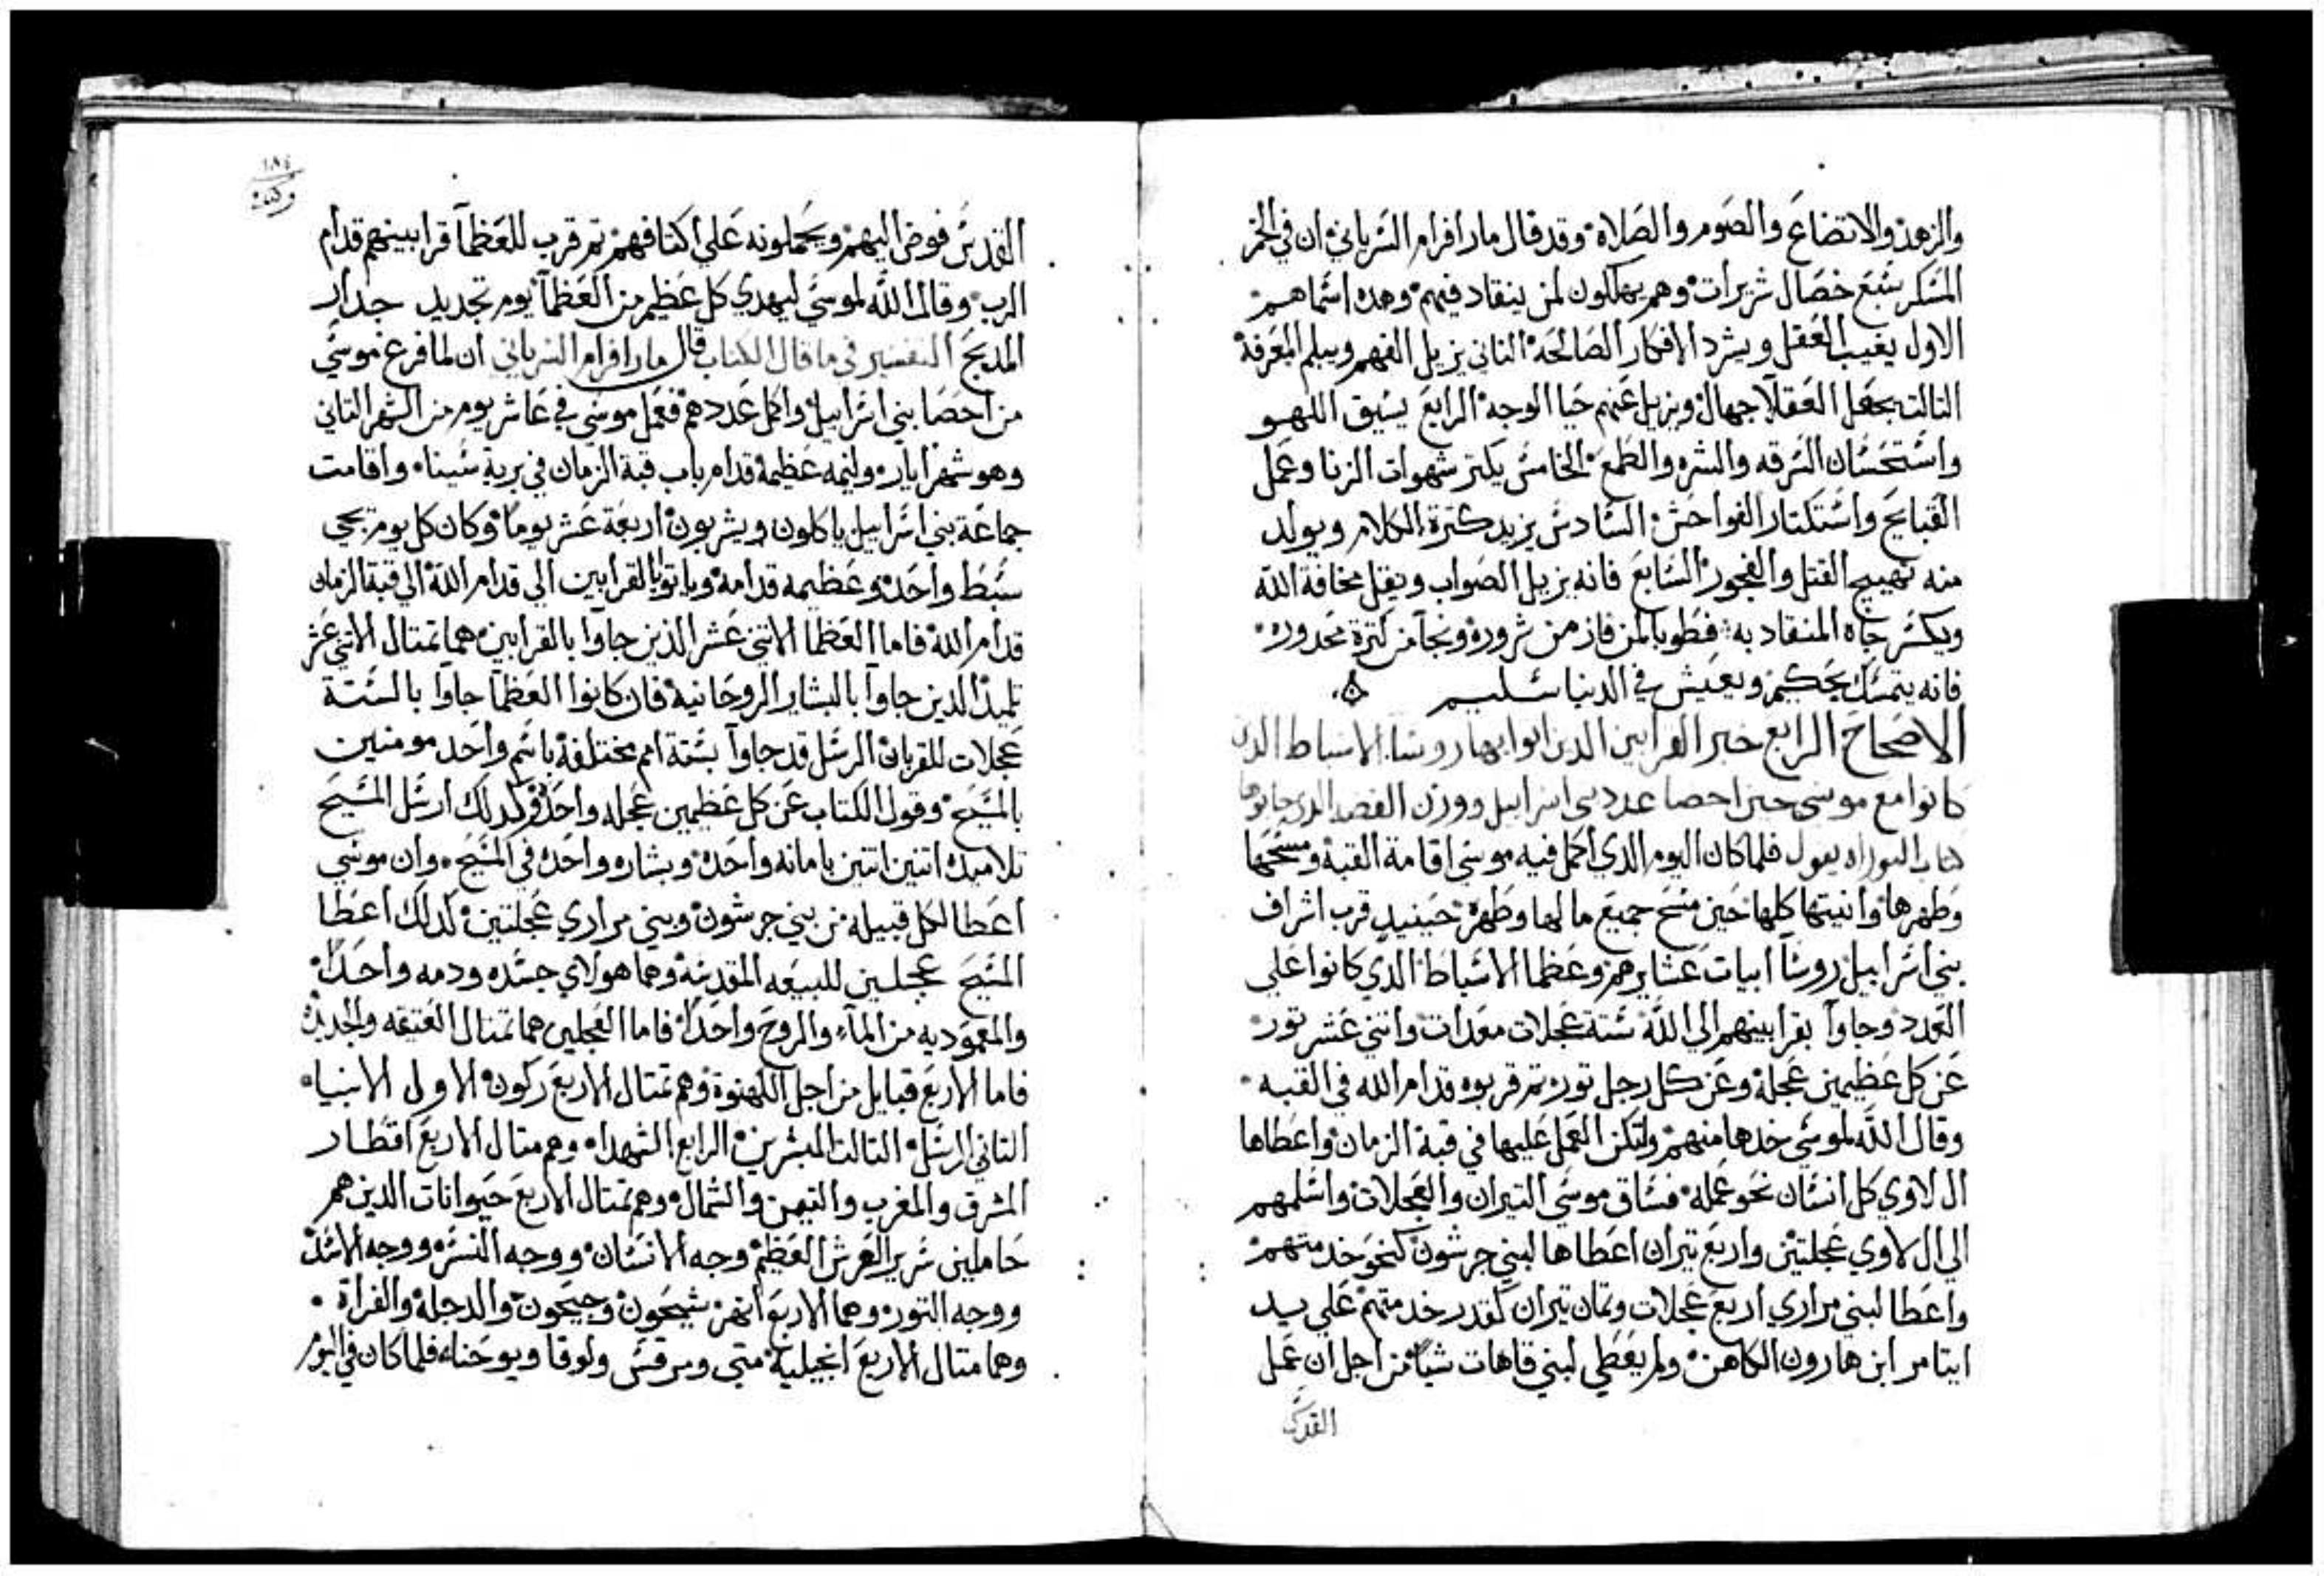 والزهد والاتضاع والصوم والصلاة وقد قال مار افرام السرياني ان في الخمر
المسكر سبع خصال شريرات وهم يهلكون لمن ينقاد فيهم وهده اسماهم
الاول يغيب العقل ويشرد الافكار الصالحة التاني يزيل الفهم ويبلم المعرفة
التالت يجعل العقلا جهال ويزيل عنهم حيا الوجه الرابع يسبق اللهو
واستحسان السرقه والشره والطمع الخامس يكتر شهوات الزنا وعمل
القبايح واستكتار الفواحش السادس يزيد كترة الكلام ويولد
منه تهييج القتل والفجور السابع فانه يزيل الصواب ويقل مخافة الله
ويكسر جاه المنقاد به فطوبا لمن فاز من شروره ونجا من كترة محدوره
فانه يتمسك بحكيم ويعيش في الدنيا سليم
الاصحاح الرابع خبر القرابين الدين اتوا بها روسا الاسباط الدين
كانوا مع موسى حين احصا عدد بنى اسراييل ووزن الفضه الدى جابوها
كتاب التوراه يقول فلما كان اليوم الدي اكمل فيه موسي اقامة القبة ومسحها
وطهرها وانيتها كلها حين مسح جميع ما لها وطهره حينيد قرب اشراف
بني اسراييل روسا ابيات عشايرهم وعظما الاسباط الدي كانوا علي
العدد وجاوا بقرابينهم الي الله ستة عجلات معدات واتني عشر تور
عن كل عظيمين عجلة وعن كل رجل تور تم قربوه قدام الله في القبه
وقال الله لموسي خدها منهم ولتكن العمل عليها في قبة الزمان واعطاها
ال لاوي كل انسان نحو عمله فساق موسي التيران والعجلات واسلمهم
الي ال لاوي عجلتين واربع تيران اعطاها لبني جرشون كنحو خدمتهم
واعطا لبني مراري اربع عجلات وتمان تيران كقدر خدمتهم علي يد
ايتامر ابن هارون الكاهن ولم يعطي لبني قاهات شيا من اجل ان عمل
القدس
١٨٤
القدس فوض اليهم ويحملونه علي اكتافهم تم قرب للعظما قرابينهم قدام
الرب وقال الله لموسي ليهدي كل عظيم من العظما يوم تجديد جدار
المدبح التفسير فى ما قال الكتاب قال مار افرام السرياني ان لما فرغ موسي
من احصا بني اسراييل واكمل عددهم فعمل موسي في عاشر يوم من الشهر التاني
وهو شهر ايار وليمه عظيمة قدام باب قبة الزمان في برية سينا واقامت
جماعة بني اسراييل ياكلون ويشربون اربعة عشر يوما وكان كل يوم يجي
سبط واحد وعظيمه قدامه وياتوا بالقرابين الي قدام الله الي قبة الزمان
قدام الله فاما العظما الاتني عشر الذين جاوا بالقرابين هما تمتال الاتني عشر
تلميد الدين جاوا بالبشاير الروحانية فان كانوا العظما جاوا بالستة
عجلات للقربان الرسل قد جاوا بستة امم مختلفة باسم واحد مومنين
بالمسيح وقول الكتاب عن كل عظيمين عجله واحده فكدلك ارسل المسيح
تلاميده اتنين اتنين بامانه واحده وبشاره واحده في المسيح وان موسي
اعطا لكل قبيله من بني جرشون وبني مراري عجلتين كدلك اعطا
المسيح عجلين للبيعه المقدسة وهما هولاي جسده ودمه واحدا
والمعموديه من الماء والروح واحدا فاما العجلين هما تمتال العتيقه والحديثه
فاما الاربع قبايل من اجل الكهنوة وهم تمتال الاربع ركون الاول الانبيا
التاني الرسل التالت المبشرين الرابع الشهدا وهم متال الاربع اقطار
المشرق والمغرب والتيمن والشمال وهم تمتال الاربع حيوانات الدين هم
حاملين سرير العرش العظيم وجه الانسان ووجه النسر ووجه الاسد
ووجه التور وهما الاربع انهر سيحون وجيحون والدجلة والفراة
وهما متال الاربع انجيلية متي ومرقس ولوقا ويوحنا فلما كان في اليوم